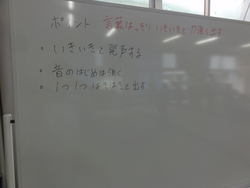 ポイント 言葉はっきり いきいきと 力強く出す
・いきいきと発声する
・音のはじめは強く
・1つ1つはきはきと出す